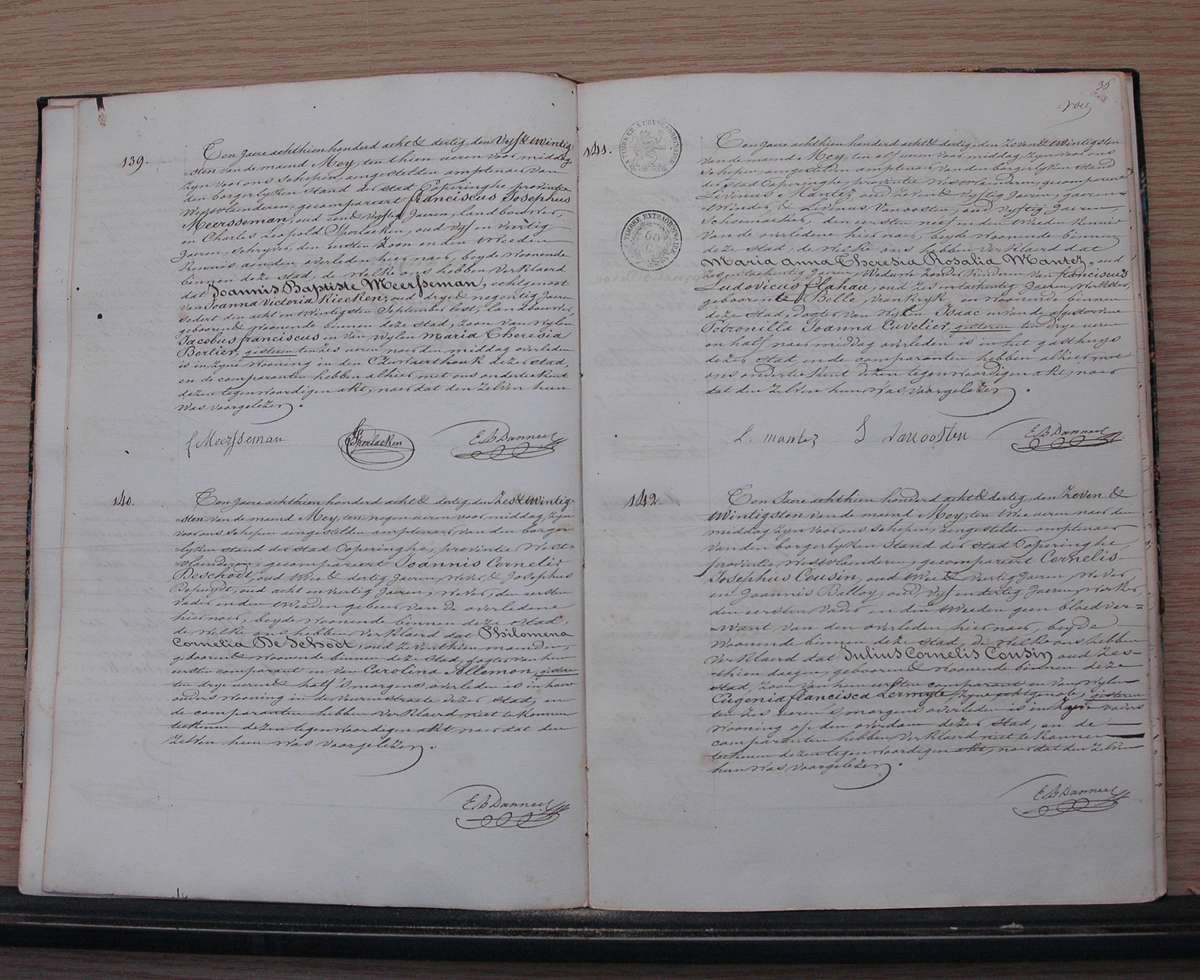 139.
Ten Jaere achthien honderd acht & dertig, den Vyf & twintig-
sten van de maend Mey, ten thien ueren voor middag
zyn voor ons Schepen aengestelden amptenaer van
den borgerlyken Stand der Stad Poperinghe, provintie
Westvlanderen, gecompareert franciscus Josephus
Meersseman, oud Jaeren, Landbouwer,
en Charles Leopold oud vyf en veertig
Jaeren, den eersten Zoon en den tweeden
Kennis van den overleden hier naer, beyde woonende
binnen deze Stad, de welke ons hebben verklaerd
dat Joannis Baptiste Meersseman, echtgenoot
van Joanna Victoria Riecken, oud drye & negentig Jaeren
sedert den acht en twintigsten September lest, Landbouwer,
geboren & woonende binnen deze Stad, Zoon van wylen
Jacobus franciscus en van wylen Maria Theresia
Bertier, gisteren ten zes ueren naer den middag overleden
is in zyne wooning in den dezer Stad,
en de comparanten hebben alhier met ons onderteekent
dezen tegenwoordigen akt, naer dat den zelven hun
was voorgelezen.
f Meersseman
E. B. Danneel
140.
Ten Jaere achthien honderd acht & dertig, den Zes & twintig-
sten van de maend Mey, ten negen ueren voor middag, zyn
voor ons Schepen aengestelden amptenaer van den borger-
lyken stand der Stad Poperinghe, provintie West-
vlanderen, gecompareert Joannis Cornelis
Deschodt, oud & dertig Jaeren, wever, & Josephus
oud acht en veertig Jaeren, wever, den eersten
vader en den tweeden gebuer van de overledene
hier naer, beyde woonende binnen deze Stad,
de welke ons hebben verklaerd dat Philomena
Cornelia De Schodt, oud maenden,
geboren & woonende binnen deze Stad, dogter van den
eersten comparant en van Carolina Allemon, gisteren
ten drye ueren & half 's morgens overleden is in haer
ouders wooning in de straete dezer Stad, en
de comparanten hebben verklaerd niet te konnen
teekenen dezen tegenwoordigen akt, naer dat den
zelven hun was voorgelezen.
E. B. Danneel
36
141.
TIMBRE EXTRAORDINAIRE
Ten Jaere achthien honderd acht & dertig, den Zeven & twintigsten
van de maend Mey, ten elf ueren voor middag, zyn voor ons
Schepen aengestelden amptenaer van den borgerlyken stand
der Stad Poperinghe, provintie Westvlanderen, gecompareert
Livinus Mantez, oud Jaeren,
& Livinus Vanoosten, oud vyftig Jaeren,
den eersten en den tweeden Kennis
van de overledene hier naer, beyde woonende binnen
deze Stad, de welke ons hebben verklaerd dat
Maria Anna Theresia Rosalia Mantez, oud
Zes en tachentig Jaeren, Weduwe zonder kinders van franciscus
Ludovicus flahau, oud Zes en tachentig Jaeren,
geboren te Belle, Vrankryk, en woonende binnen
deze Stad, dogter van wylen Isaac en van de
Petronilla Joanna Cuvelier, gisteren ten drye ueren
en half naer middag overleden is in het gasthuys
dezer Stad, en de comparanten hebben alhier met
ons onderteekent dezen tegenwoordigen akt, naer
dat den zelven hun was voorgelezen.
L. mantez L Vanoosten E. B. Danneel
142.
Ten Jaere achthien honderd acht & dertig, den Zeven &
twintigsten van de maend Mey, ten twee ueren naer den
middag zyn voor ons Schepen aengestelden amptenaer
van den borgerlyken Stand der Stad Poperinghe
provintie Westvlanderen, gecompareert Cornelis
Josephus Cousin, oud twee & veertig Jaeren, wever
en Joannis Belloy, oud vyf en dertig Jaeren,
den eersten vader en den tweeden geen bloedver-
want van den overleden hier naer, beyde
woonende binnen deze Stad, de welke ons hebben
verklaerd dat Julius Cornelis Cousin, oud Zes-
thien dagen, geboren & woonende binnen deze
Stad, Zoon van den eersten comparant en van wylen
Eugenia francisca zyne echtgenote, gisteren
ten zes ueren 's morgens overleden is in zyn vaders
wooning op den dezer Stad, en de
comparanten hebben verklaerd niet te konnen
teekenen dezen tegenwoordigen akt, naer dat den zelven
hun was voorgelezen.
E. B. Danneel